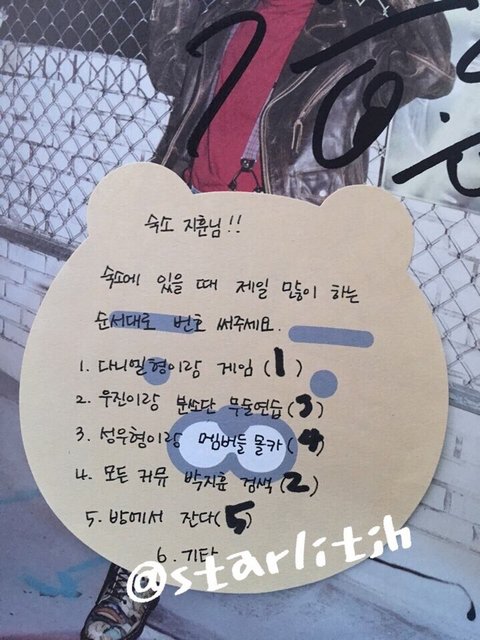 숙소 지훈님!!
숙소에 있을 때 제일 많이 하는
순서대로 번호 써주세요.
1. 다니엘형이랑 게임 (1)
2. 우진이랑 분소단 무술연습 (3)
3. 성우형이랑 멤버들 몰카 (4)
4. 모든 커뮤 박지훈 검색 (2)
5. 방에서 잔다 (5)
6. 기타
@starlitjh